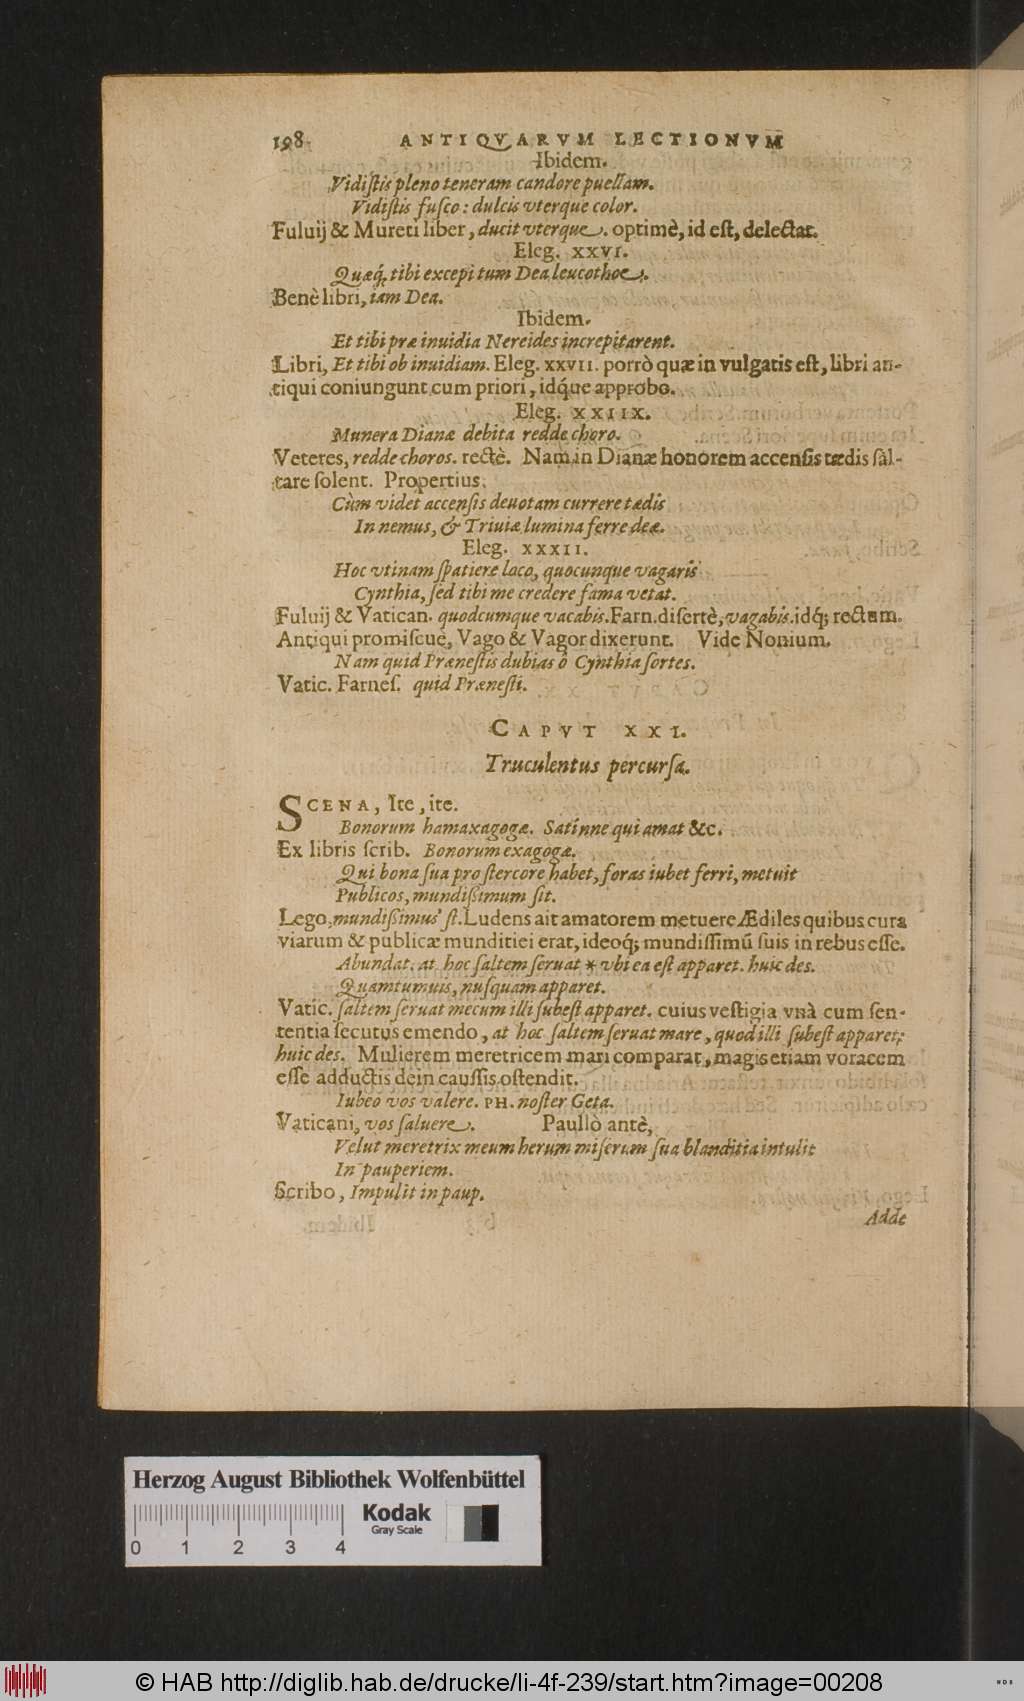 198 ANTIQVARVM LECTIONVM
Ibidem.
Vidiſtis pleno teneram candore puellam.
Vidiſtis fuſco: dulcis vterque color.
Fuluij & Mureti liber, ducit vterque. optimè, id eſt, delectat.
Eleg. XXVI.
Quæq́; tibi excepi tum Dea leucothoe.
Benè libri, iam Dea.
Ibidem.
Et tibi præ inuidia Nereides increpitarent.
Libri, Et tibi ob inuidiam. Eleg. XXVII. porrò quæ in vulgatis eſt, libri an-
tiqui coniungunt cum priori, idq́ue approbo.
Eleg. XXIIX.
Munera Dianæ debita redde choro.
Veteres, redde choros. rectè. Nam in Dianæ honorem accenſis tædis ſal-
tare ſolent. Propertius.
Cùm videt accenſis deuotam currere tædis
In nemus, & Triuiæ lumina ferre deæ.
Eleg. XXXII.
Hoc vtinam ſpatiere loco, quocunque vagaris
Cynthia, ſed tibi me credere fama vetat.
Fuluij & Vatican. quodcumque vacabis. Farn. diſertè, vagabis. idq́; rectum.
Antiqui promiſcuè, Vago & Vagor dixerunt. Vide Nonium.
Nam quid Præneſtis dubias ô Cynthia ſortes.
Vatic. Farneſ. quid Præneſti.
CAPVT XXI.
Truculentus percurſa.
SCENA, Ite, ite.
Bonorum hamaxagogæ. Satínne qui amat &c.
Ex libris ſcrib. Bonorum exagogæ.
Qui bona ſua pro ſtercore habet, foras iubet ferri, metuit
Publicos, mundiſsimum ſit.
Lego, mundiſsimus' ſt. Ludens ait amatorem metuere Ædiles quibus cura
viarum & publicæ munditiei erat, ideoq́; mundiſſimū ſuis in rebus eſſe.
Abundat. at hoc ſaltem ſeruat * vbi ea eſt apparet. huic des.
Quamtumuis, nuſquam apparet.
Vatic. ſaltem ſeruat mecum illi ſubeſt apparet. cuius veſtigia vnà cum ſen-
tentia ſecutus emendo, at hoc ſaltem ſeruat mare, quod illi ſubeſt apparet:
huic des. Mulierem meretricem mari comparat, magis etiam voracem
eſſe adductis dein cauſſis oſtendit.
Iubeo vos valere. PH. noſter Geta.
Vaticani, vos ſaluere. Paullò antè,
Velut meretrix meum herum miſerum ſua blanditia intulit
In pauperiem.
Scribo, Impulit in paup.
Adde
Herzog August Bibliothek Wolfenbüttel
Kodak
Gray Scale
0 1 2 3 4
© HAB http://diglib.hab.de/drucke/li-4f-239/start.htm?image=00208